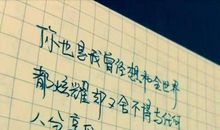 你也是我曾经想和全世界
都炫耀却又舍不得与任何
人分享的